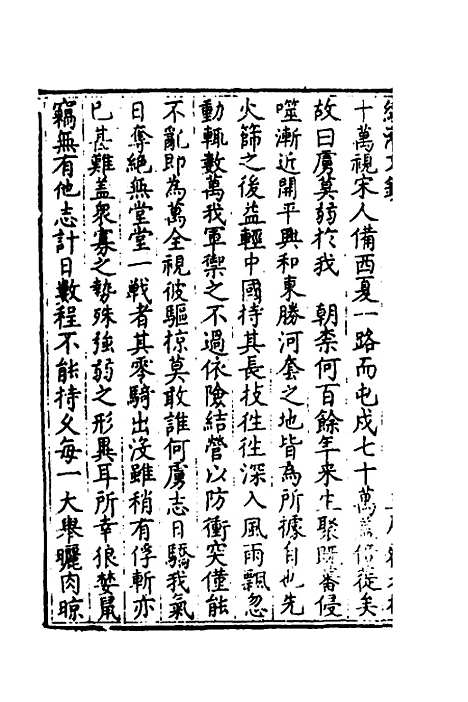 十萬視宋人備西夏一路而屯戍七十萬萬倍蓰矣
故曰虜莫弱於我　朝柰何百餘年来生聚既蕃侵
噬漸近開平興和東勝河套之地皆為所據自也先
火篩之後益輕中國恃其長技徃徃深入風雨飄忽
動輒數萬我軍禦之不過依險結營以防衝突僅能
不亂即為萬全視彼驅掠莫敢誰何虜志日驕我氣
日奪絕無堂堂一戰者其零騎出沒雖稍有俘斬亦
已甚難盖衆寡之勢殊強弱之形異耳所幸狼婪鼠
竊無有他志計日數程不能持久每一大舉曬肉晾